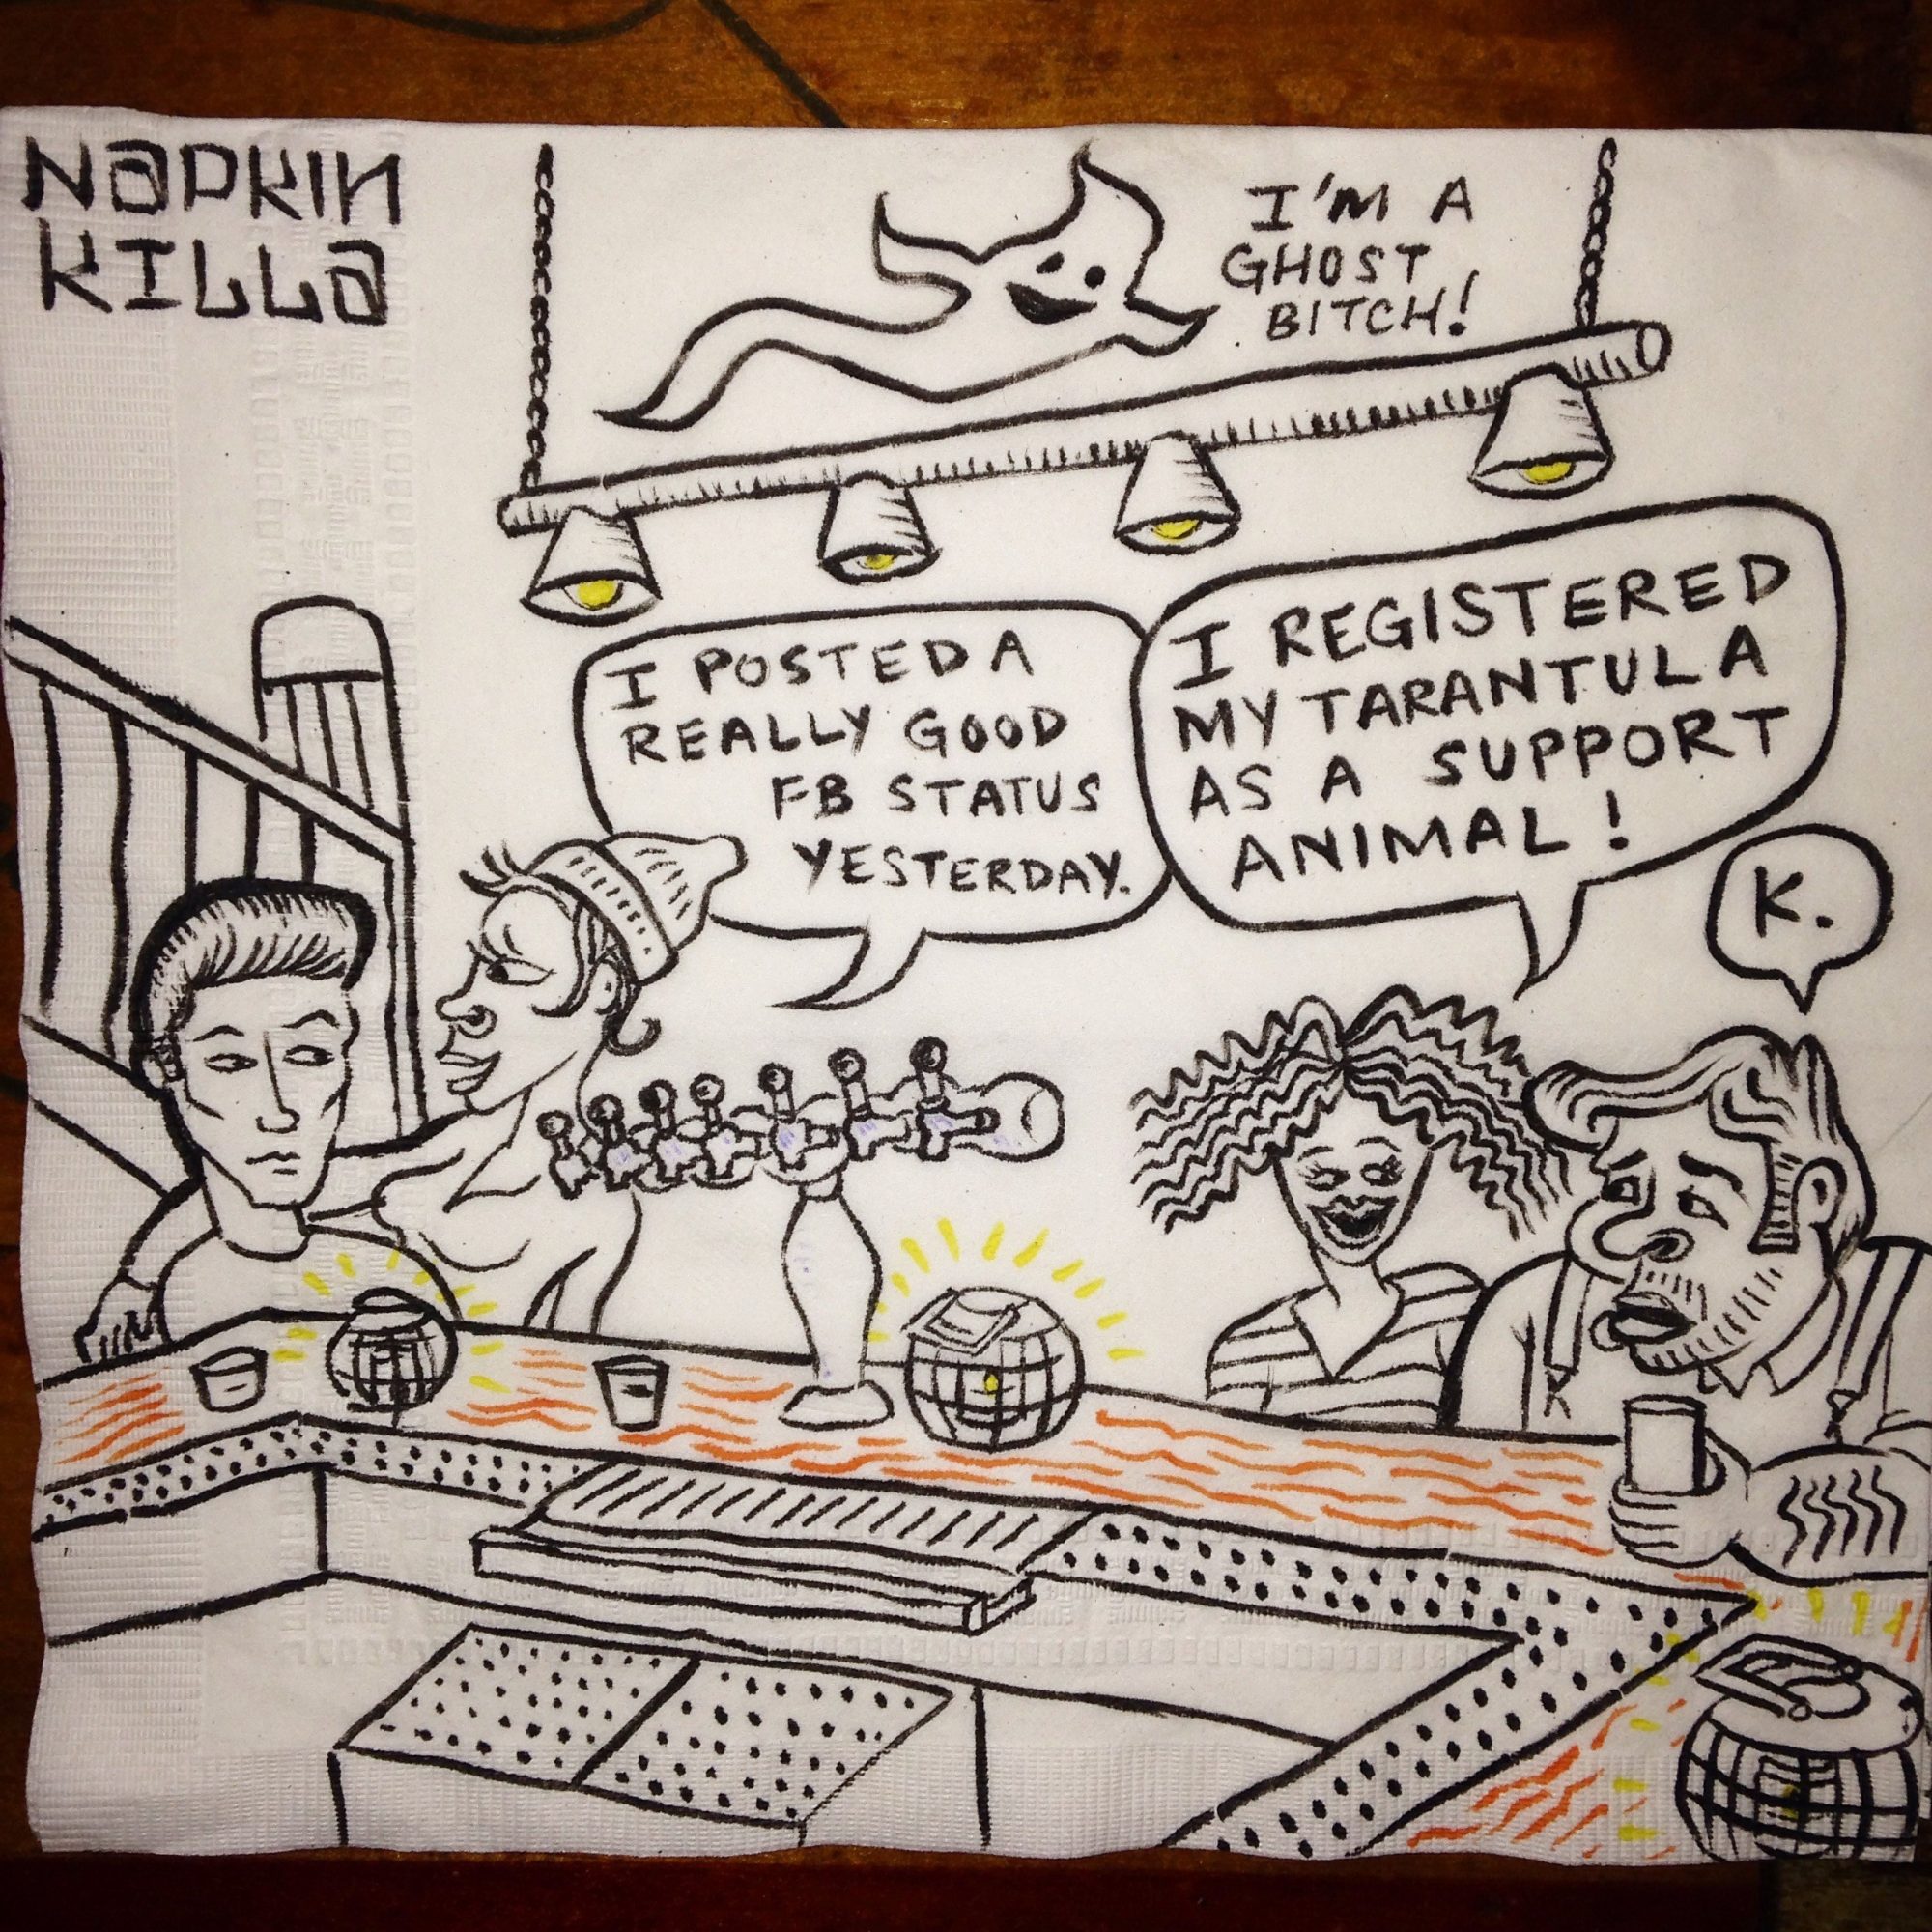 NAPKIN
KILLA
I'M A
GHOST
BITCH!
I POSTED A
REALLY GOOD
FB STATUS
YESTERDAY.
I REGISTERED
MY TARANTULA
AS A SUPPORT
ANIMAL!
K.